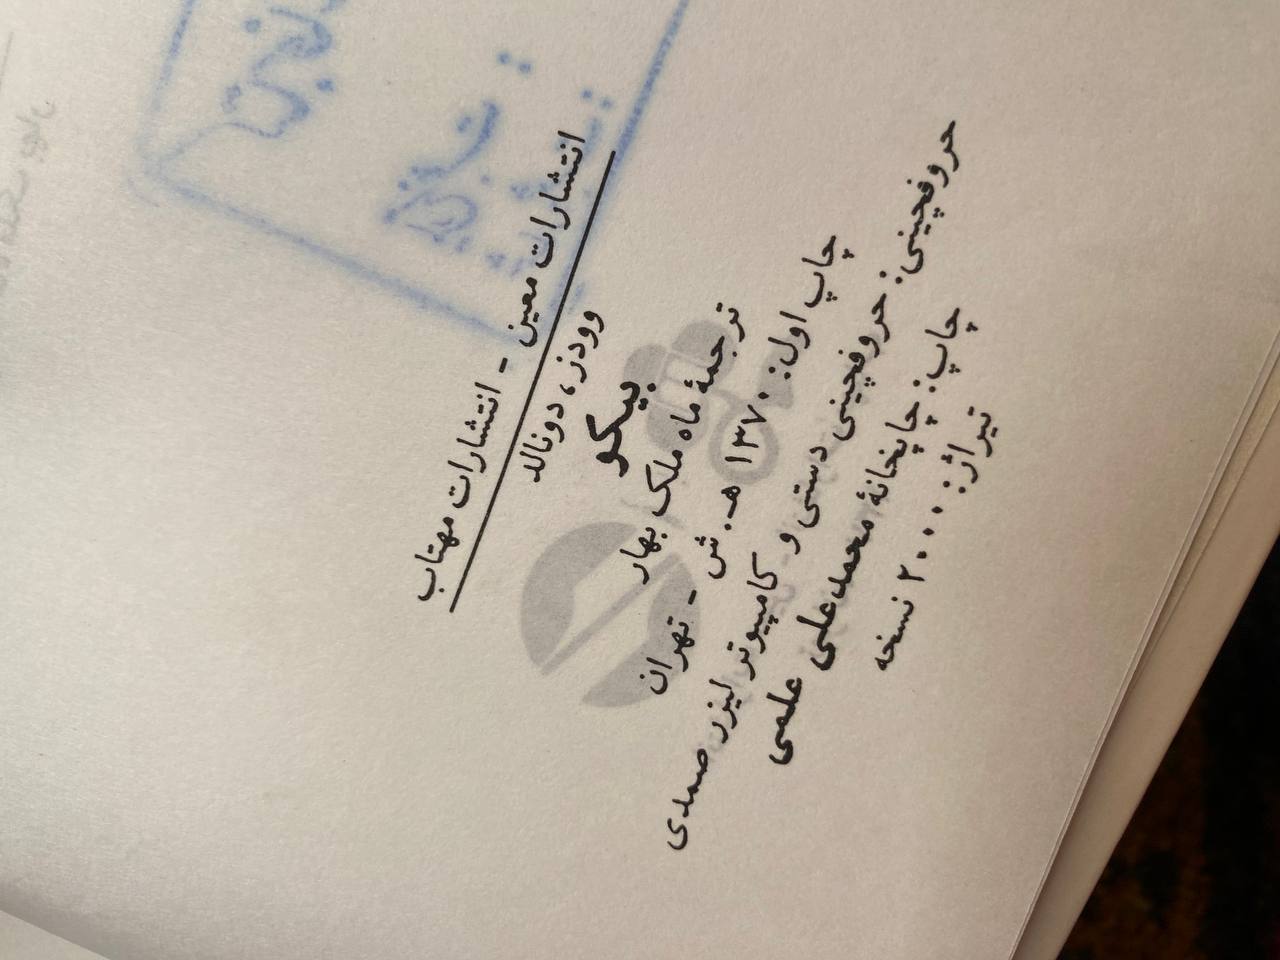 انتشارات معین - انتشارات مهتاب
وودز، دونالد
بیکو
ترجمهٔ ماه ملک بهار
چاپ اول: ۱۳۷۰ هـ.ش - تهران
حروفچینی: حروفچینی دستی و کامپیوتر لیزر صمدی
چاپ: چاپخانهٔ محمدعلی علمی
تیراژ: ۲۰۰۰ نسخه